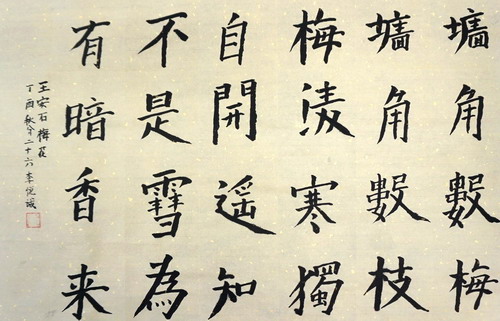 墻角數梅
墻角數枝
梅淩寒獨
自開遥知
不是雪為
有暗香来
王安石梅花
丁酉秋二十六李悦